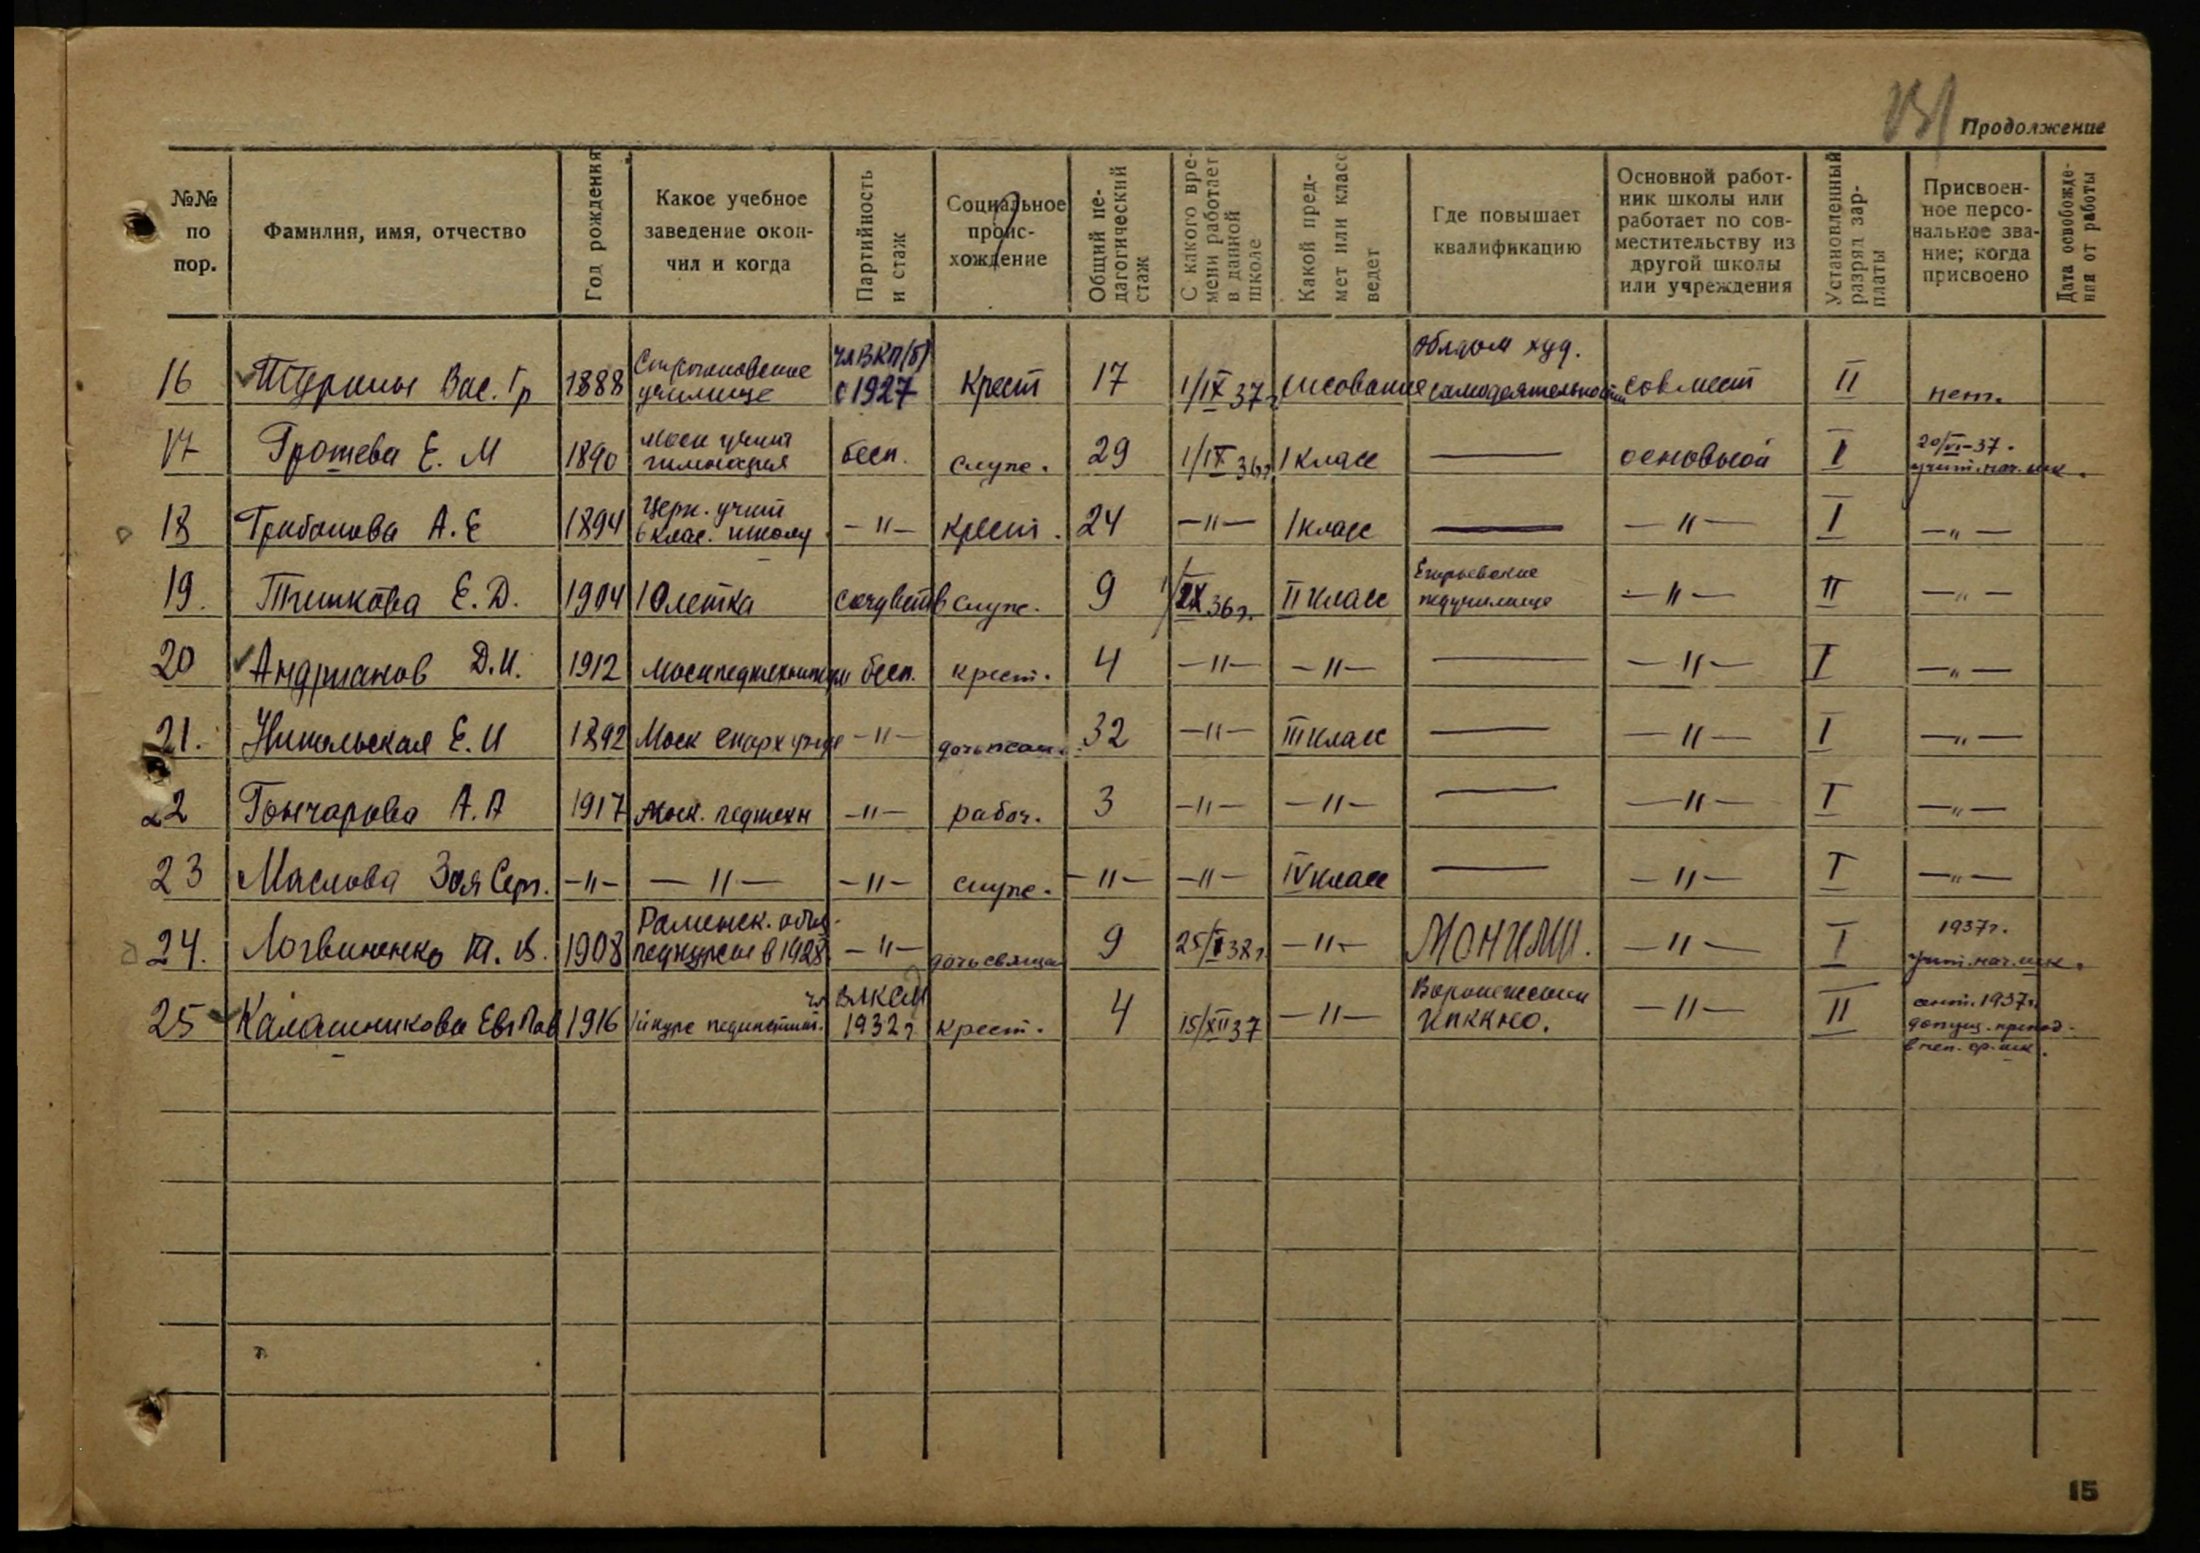 Продолжение
№№ по пор.
Фамилия, имя, отчество
Год рождения
Какое учебное заведение окон-
чил и когда
Партийность и стаж
Социальное проис-
хождение
Общий пе-
дагогический стаж
С какого вре-
мени работает в данной школе
Какой пред-
мет или класс ведет
Где повышает квалификацию
Основной работ-
ник школы или работает по сов-
местительству из другой школы или учреждения
Установленный разряд зар-
платы
Присвоен-
ное персо-
нальное зва-
ние; когда присвоено
Дата освобожде-
ния от работы
16 Вас. Гр 1888 училище чл ВКП(б) с 1927 Крест 17 1/IX 37 г. рисование Облдом худ. самодеятельности совмест II нет.
17 Грошева Е. М 1890 Моск учит гимназия бесп. служ. 29 1/IX 36 г. I класс — основной I 20/VI-37. учит. нач. шк.
18 Грибанова А. Е 1894 Церк. учит 6 клас. школу —"— крест. 24 —"— I класс — —"— I —"—
19. Тишкова Е. Д. 1904 10летка сочувств служ. 9 1/IX 36 г. II класс Егорьевское педучилище —"— II —"—
20 Андрианов Д. И. 1912 Моспедтехникум бесп. крест. 4 —"— —"— — —"— I —"—
21. Никольская Е. И 1892 Моск епарх уч-ще —"— дочь псал. 32 —"— III класс — —"— I —"—
22 Гончарова А. А 1917 Моск. педтехн —"— рабоч. 3 —"— —"— — —"— I —"—
23 Маслова Зоя Серг. —"— —"— —"— служ. —"— —"— IV класс — —"— I —"—
24. Логвиненко Т. В. 1908 Раменск. педкурсы в 1928 —"— дочь свящ 9 25/I 38 г —"— МОНИМИ. —"— I 1937 г. учит. нач. шк.
25 Калашникова Евг Пав 1916 I курс пединстит. чл ВЛКСМ 1932 г крест. 4 15/XII 37 —"— Воронежский ИПККНО. —"— II 1937 г. допущ. препод. в неп. ср. шк.
15